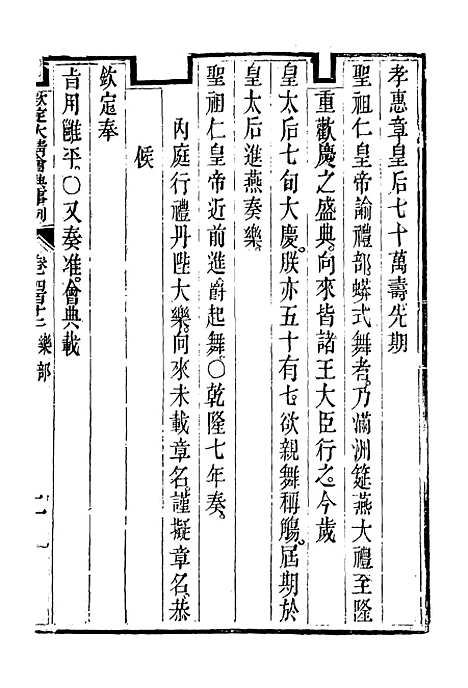 孝惠章皇后七十萬壽先期
聖祖仁皇帝諭禮部蟒式舞者乃滿洲筵燕大禮至隆
重歡慶之盛典向來皆諸王大臣行之今歲
皇太后七旬大慶朕亦五十有七欲親舞稱觴屆期於
皇太后進燕奏樂
聖祖仁皇帝近前進爵起舞○乾隆七年奏
內庭行禮丹陛大樂向來未載章名謹擬章名恭
候
欽定奉
旨用雝平○又奏准會典載
欽定大清會典事例 卷四百十二 樂部